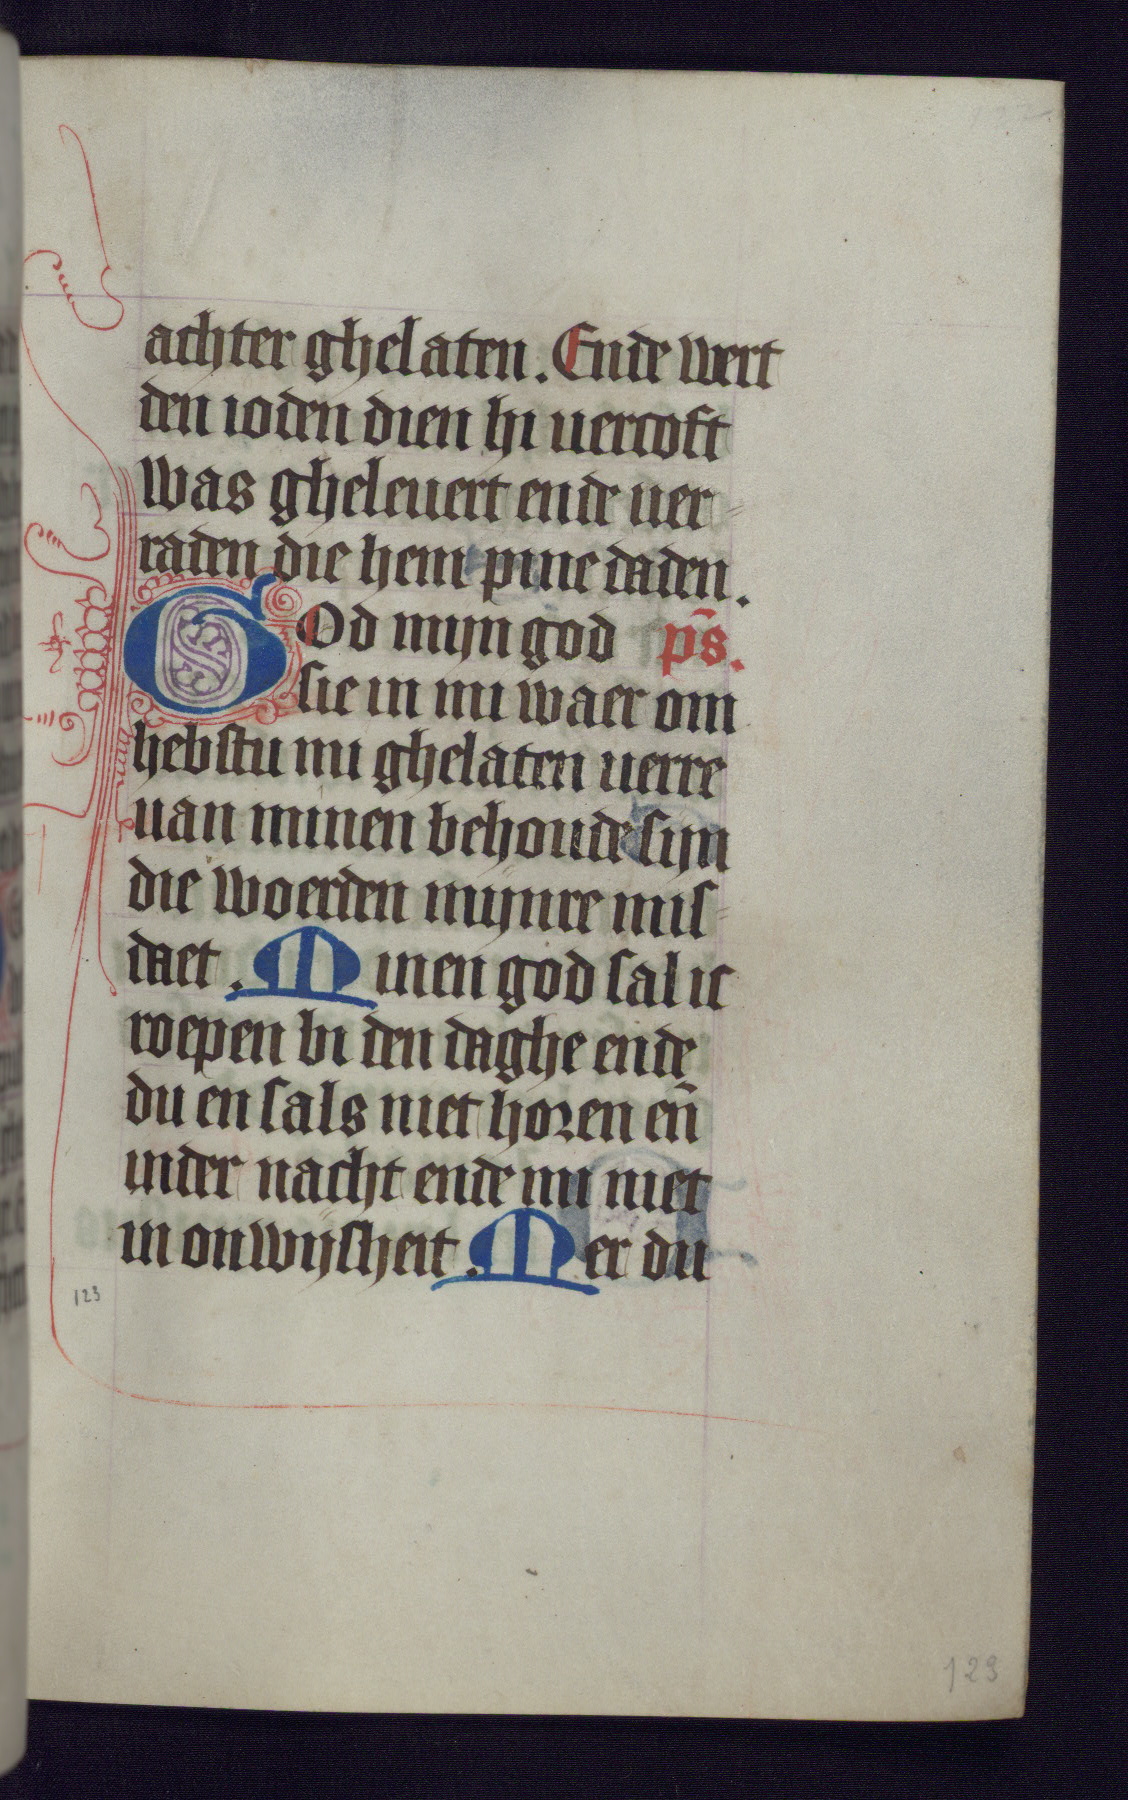 achter ghelaten. Ende wert
den ioden dien hi uercoft
was gheleuert ende uer-
raden die hem pine daden.
God mijn god p̄s.
sie in mi waer om
hebstu mi ghelaten uerre
uan minen behoude sijn
die woerden mijnre mis-
daet. Minen god sal ic
roepen bi den daghe ende
du en sals niet horen en̄
inder nacht ende mi niet
in onwijsheit. Mer du
123
123